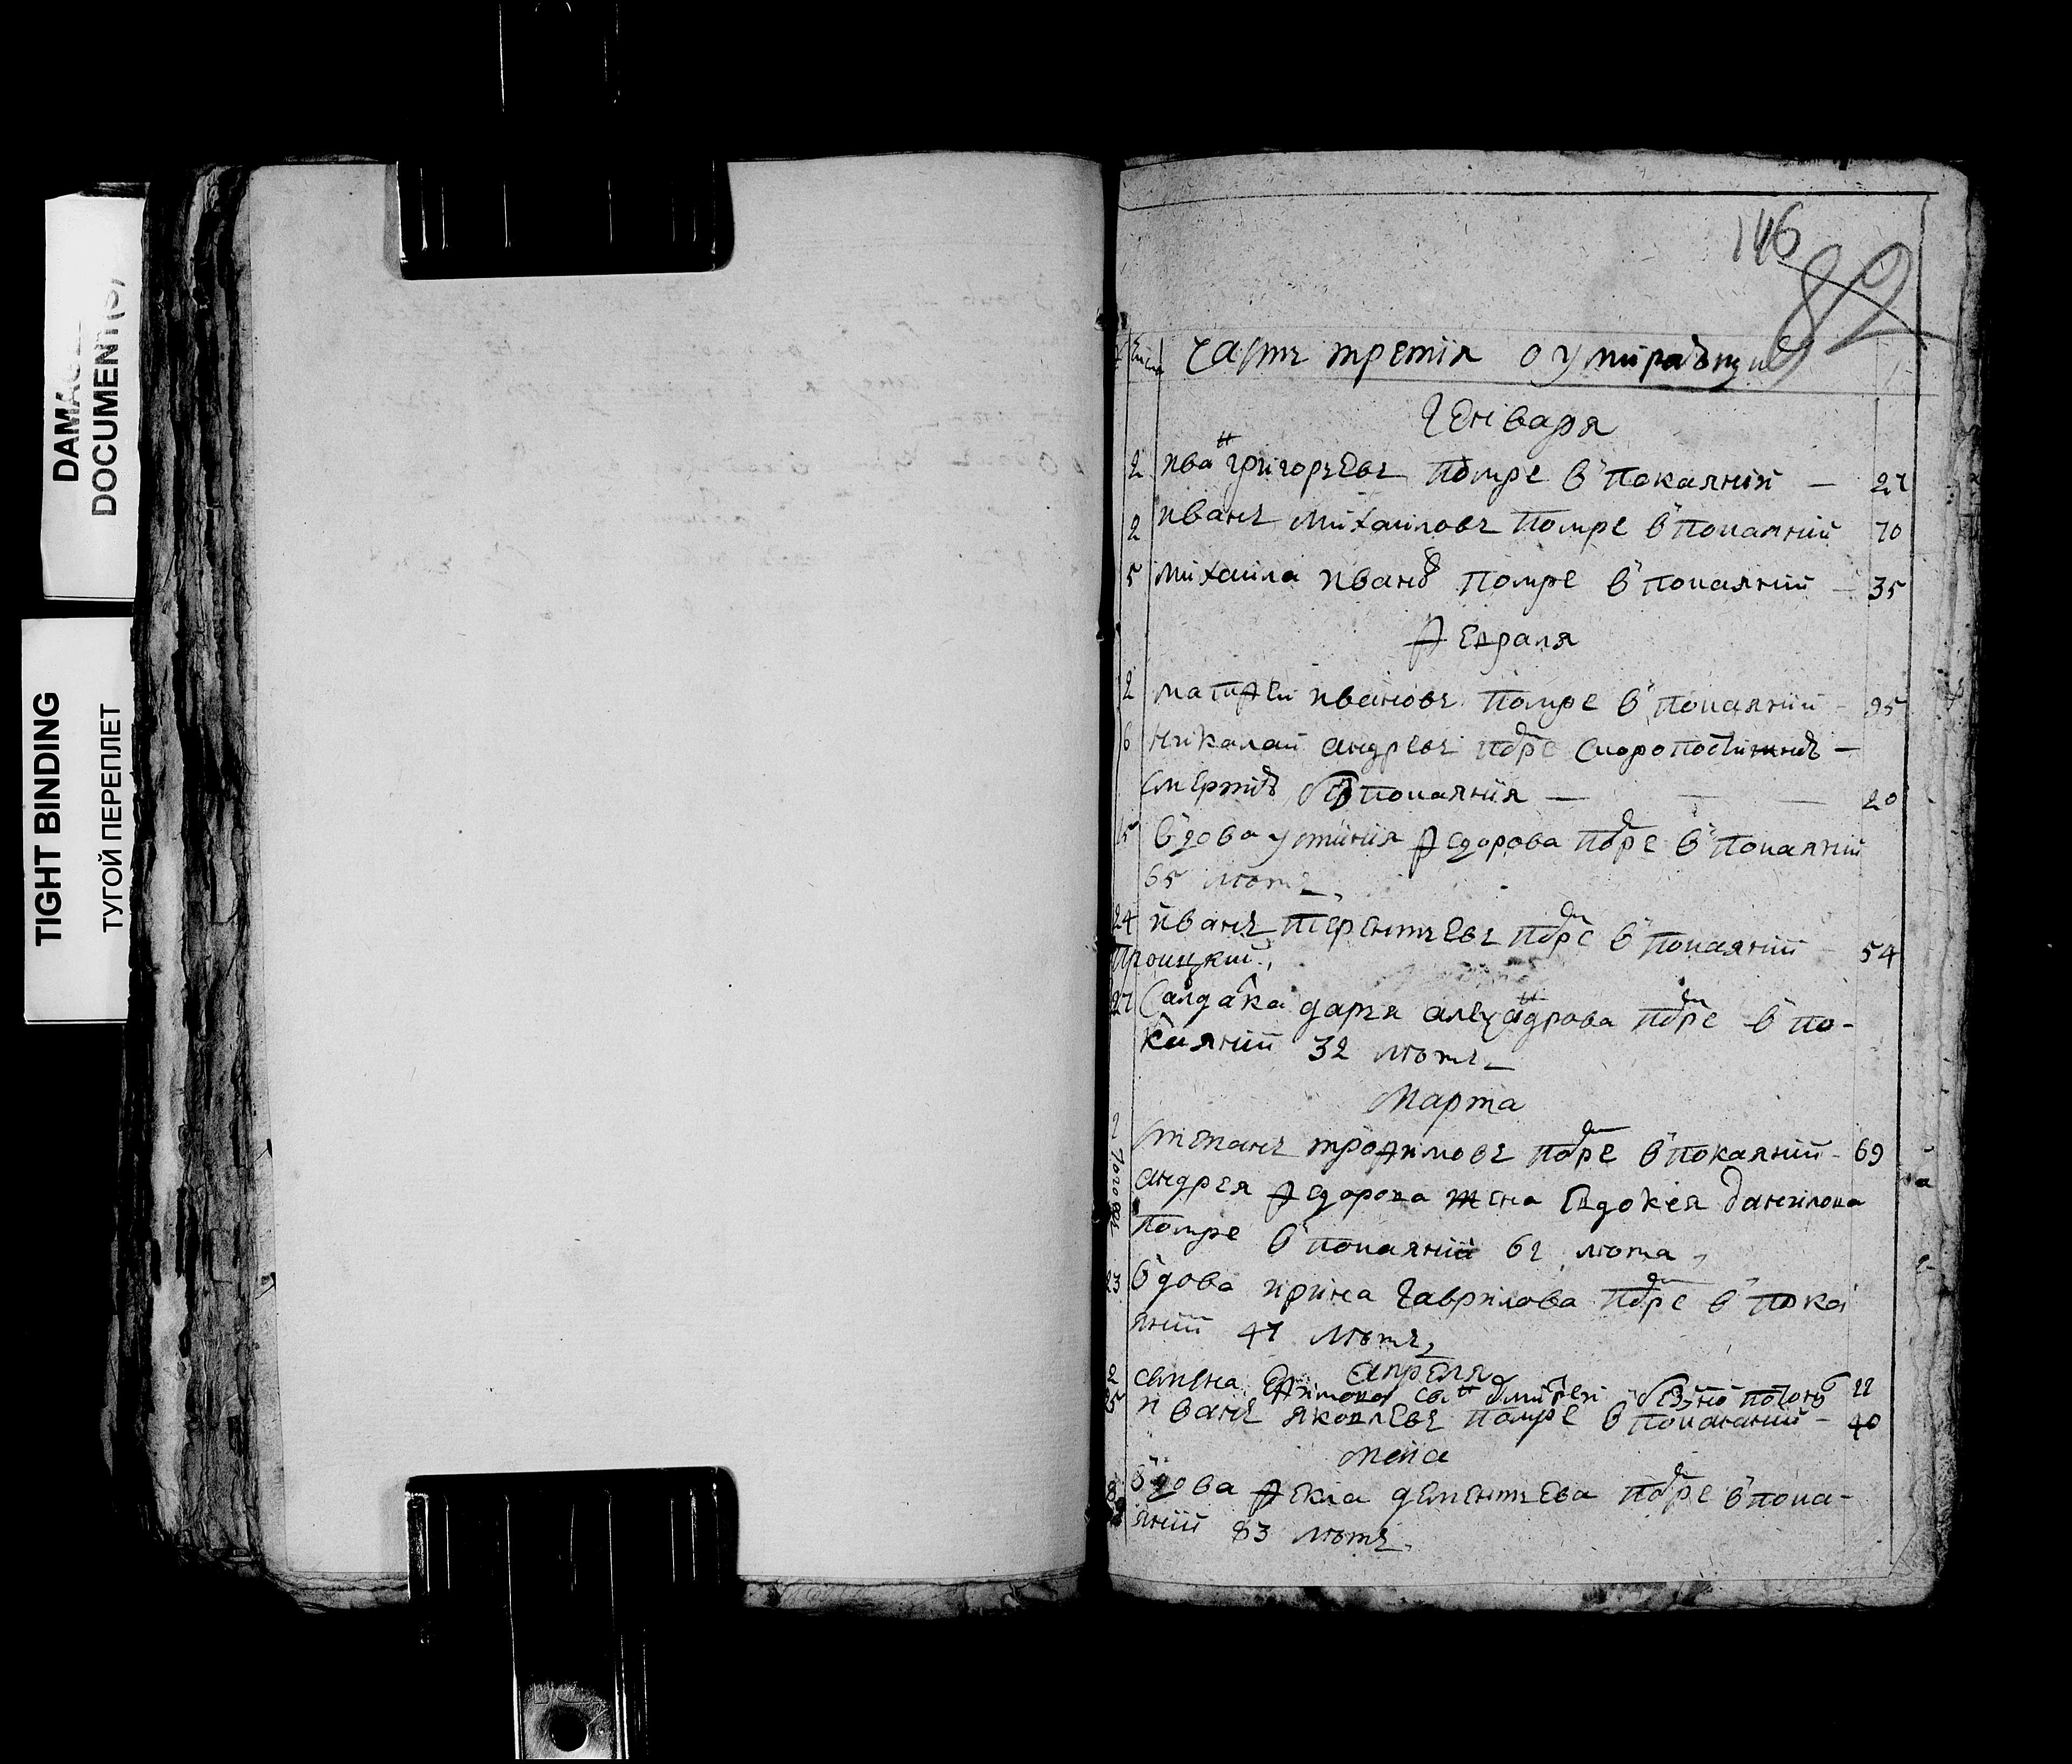 DAMAGE
DOCUMENT(S)
TIGHT BINDING
ТУГОЙ ПЕРЕПЛЕТ
146
82
Часть третия о умираѣщиѣ
Генѣваря
2 ива н григорьевъ помре в покаянии — 27
2 иванъ михаиловъ помре в покаянии 70
5 михаила ивано в помре в покаянии — 35
Февраля
2 матфеи ивановъ помре в покаянии - 95
6 николаи андревъ помре скоропостижнѣ —
смертиѣ без покаяния — 20
15 вдова устиния федорова помре в покаянии
65 лѣтъ
24 иванъ терентьевъ помре в покаянии 54
Троицкии
27 салдака дарья алеѯандрова помре в по-
каянии 32 лѣтъ
Марта
2 степанъ трофимовъ помре в покаянии - 69
андрея федорова жена Евдокея данилова
помре в покаянии 62 лѣта
23 вдова ирина гаврилова помре в пока
янии 47 лѣтъ
апреля
2 семена Ефимова сы н дмитреи 22
25 иванъ яковлевъ помре в покаянии - 40
меиа
8 вдова фекла дементьева помре в пока-
янии 83 лѣтъ